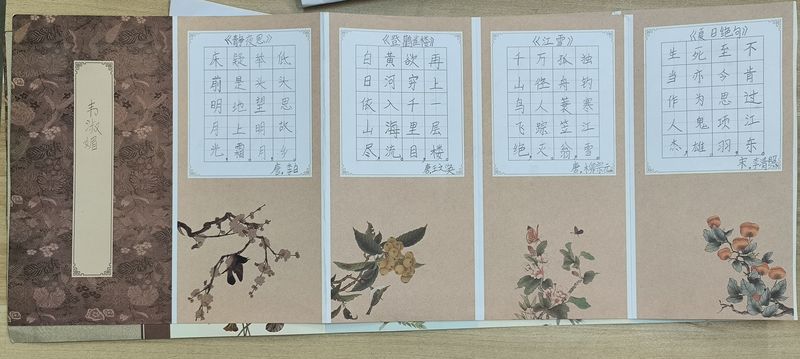 韦淑媚
《静夜思》
床前明月光，
疑是地上霜。
举头望明月，
低头思故乡。
唐.李白
《登鹳雀楼》
白日依山尽，
黄河入海流。
欲穿千里目，
再上一层楼。
唐.王之涣
《江雪》
千山鸟飞绝，
万径人踪灭。
孤舟蓑笠翁，
独钓寒江雪。
唐.柳宗元
《夏日绝句》
生当作人杰，
死亦为鬼雄。
至今思项羽，
不肯过江东。
宋.李清照